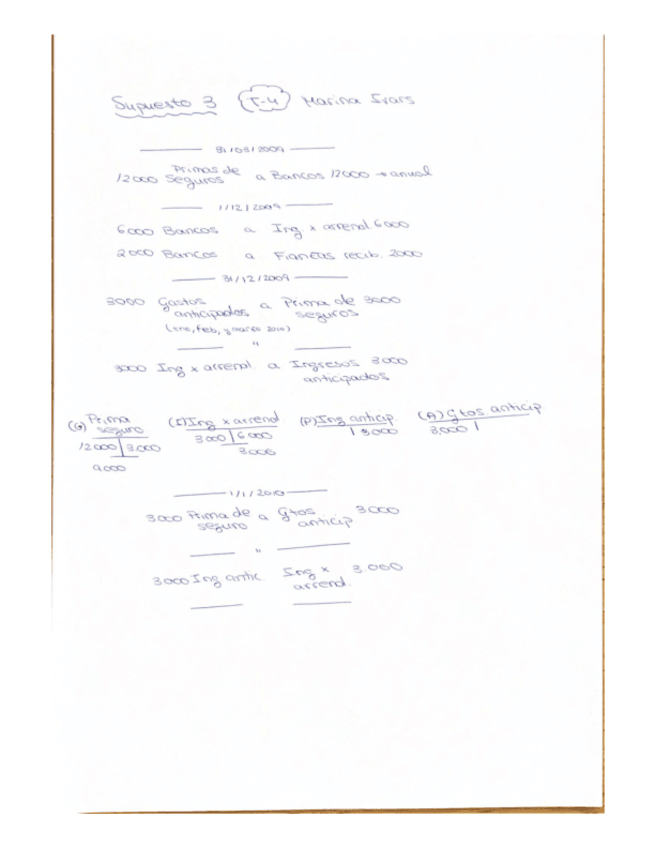 Supuesto 3 T-4 Marina Ivars
31/03/2009
12000 Primas de Seguros a Bancos 12000 → anual
1/12/2009
6000 Bancos a Ing. x arrend. 6000
2000 Bancos a Fianzas recib. 2000
31/12/2009
3000 Gastos anticipados a Prima de seguros 3000
(ene, feb, y marzo 2010)
"
3000 Ing x arrend. a Ingresos anticipados 3000
(G) Prima seguro (I) Ing x arrend (P) Ing anticip. (A) Gtos anticip
12000 | 3000 3000 | 6000 | 3000 3,000 |
9000 3000
1/1/2010
3000 Prima de seguro a Gtos anticip 3000
"
3000 Ing antic. Ing x arrend. 3.000